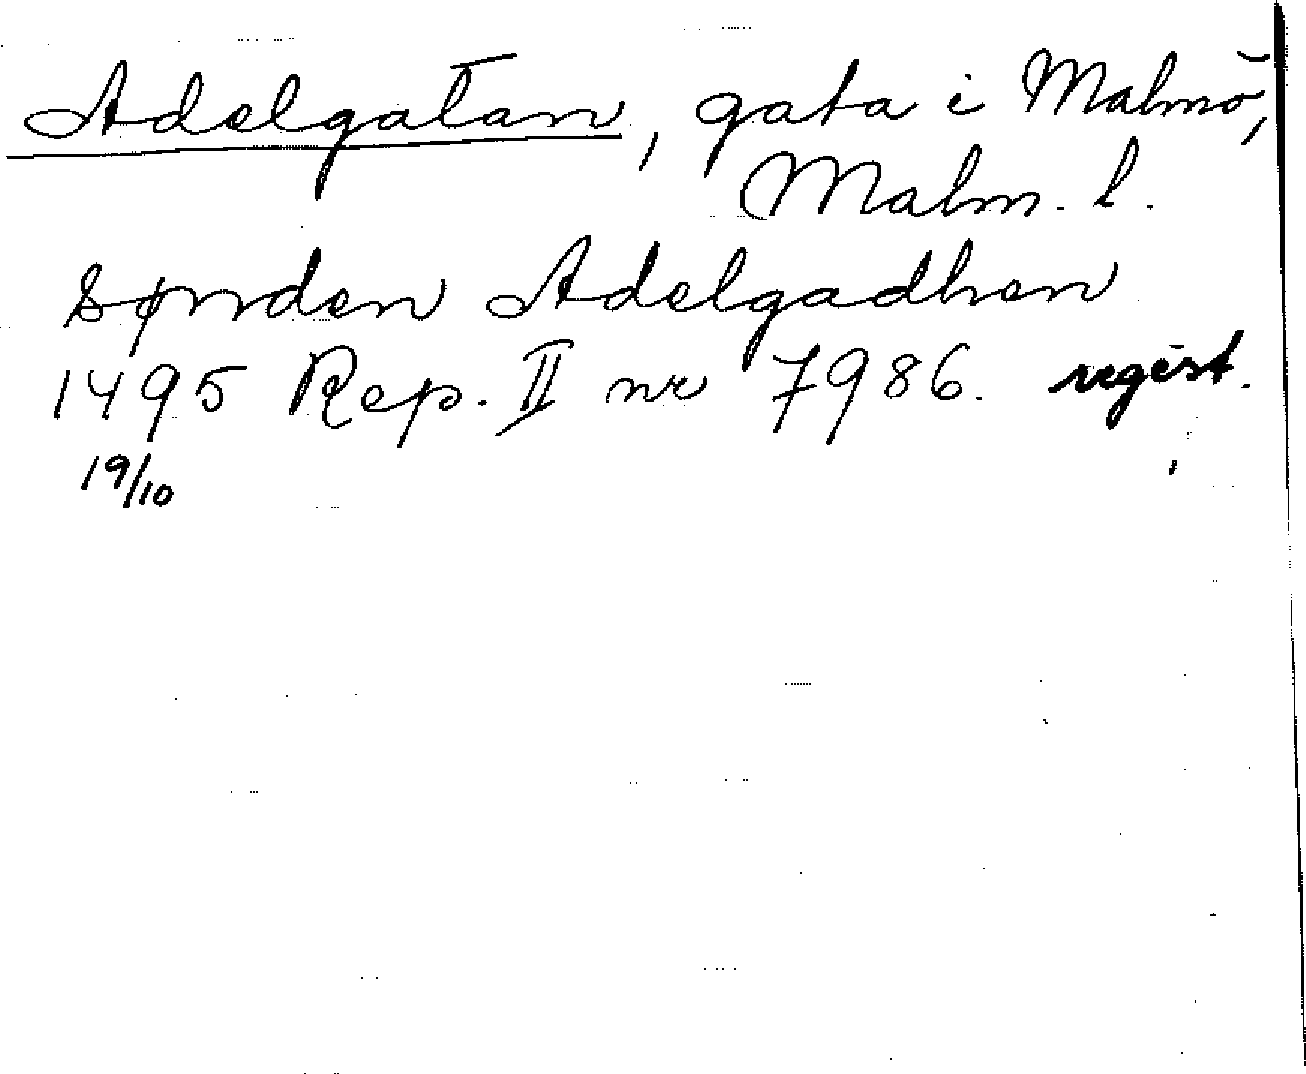 Adelgatan, gata i Malmö,
Malm. l.
synden Adelgadhen
1495 Rep. II nr 7986. regest.
19/10